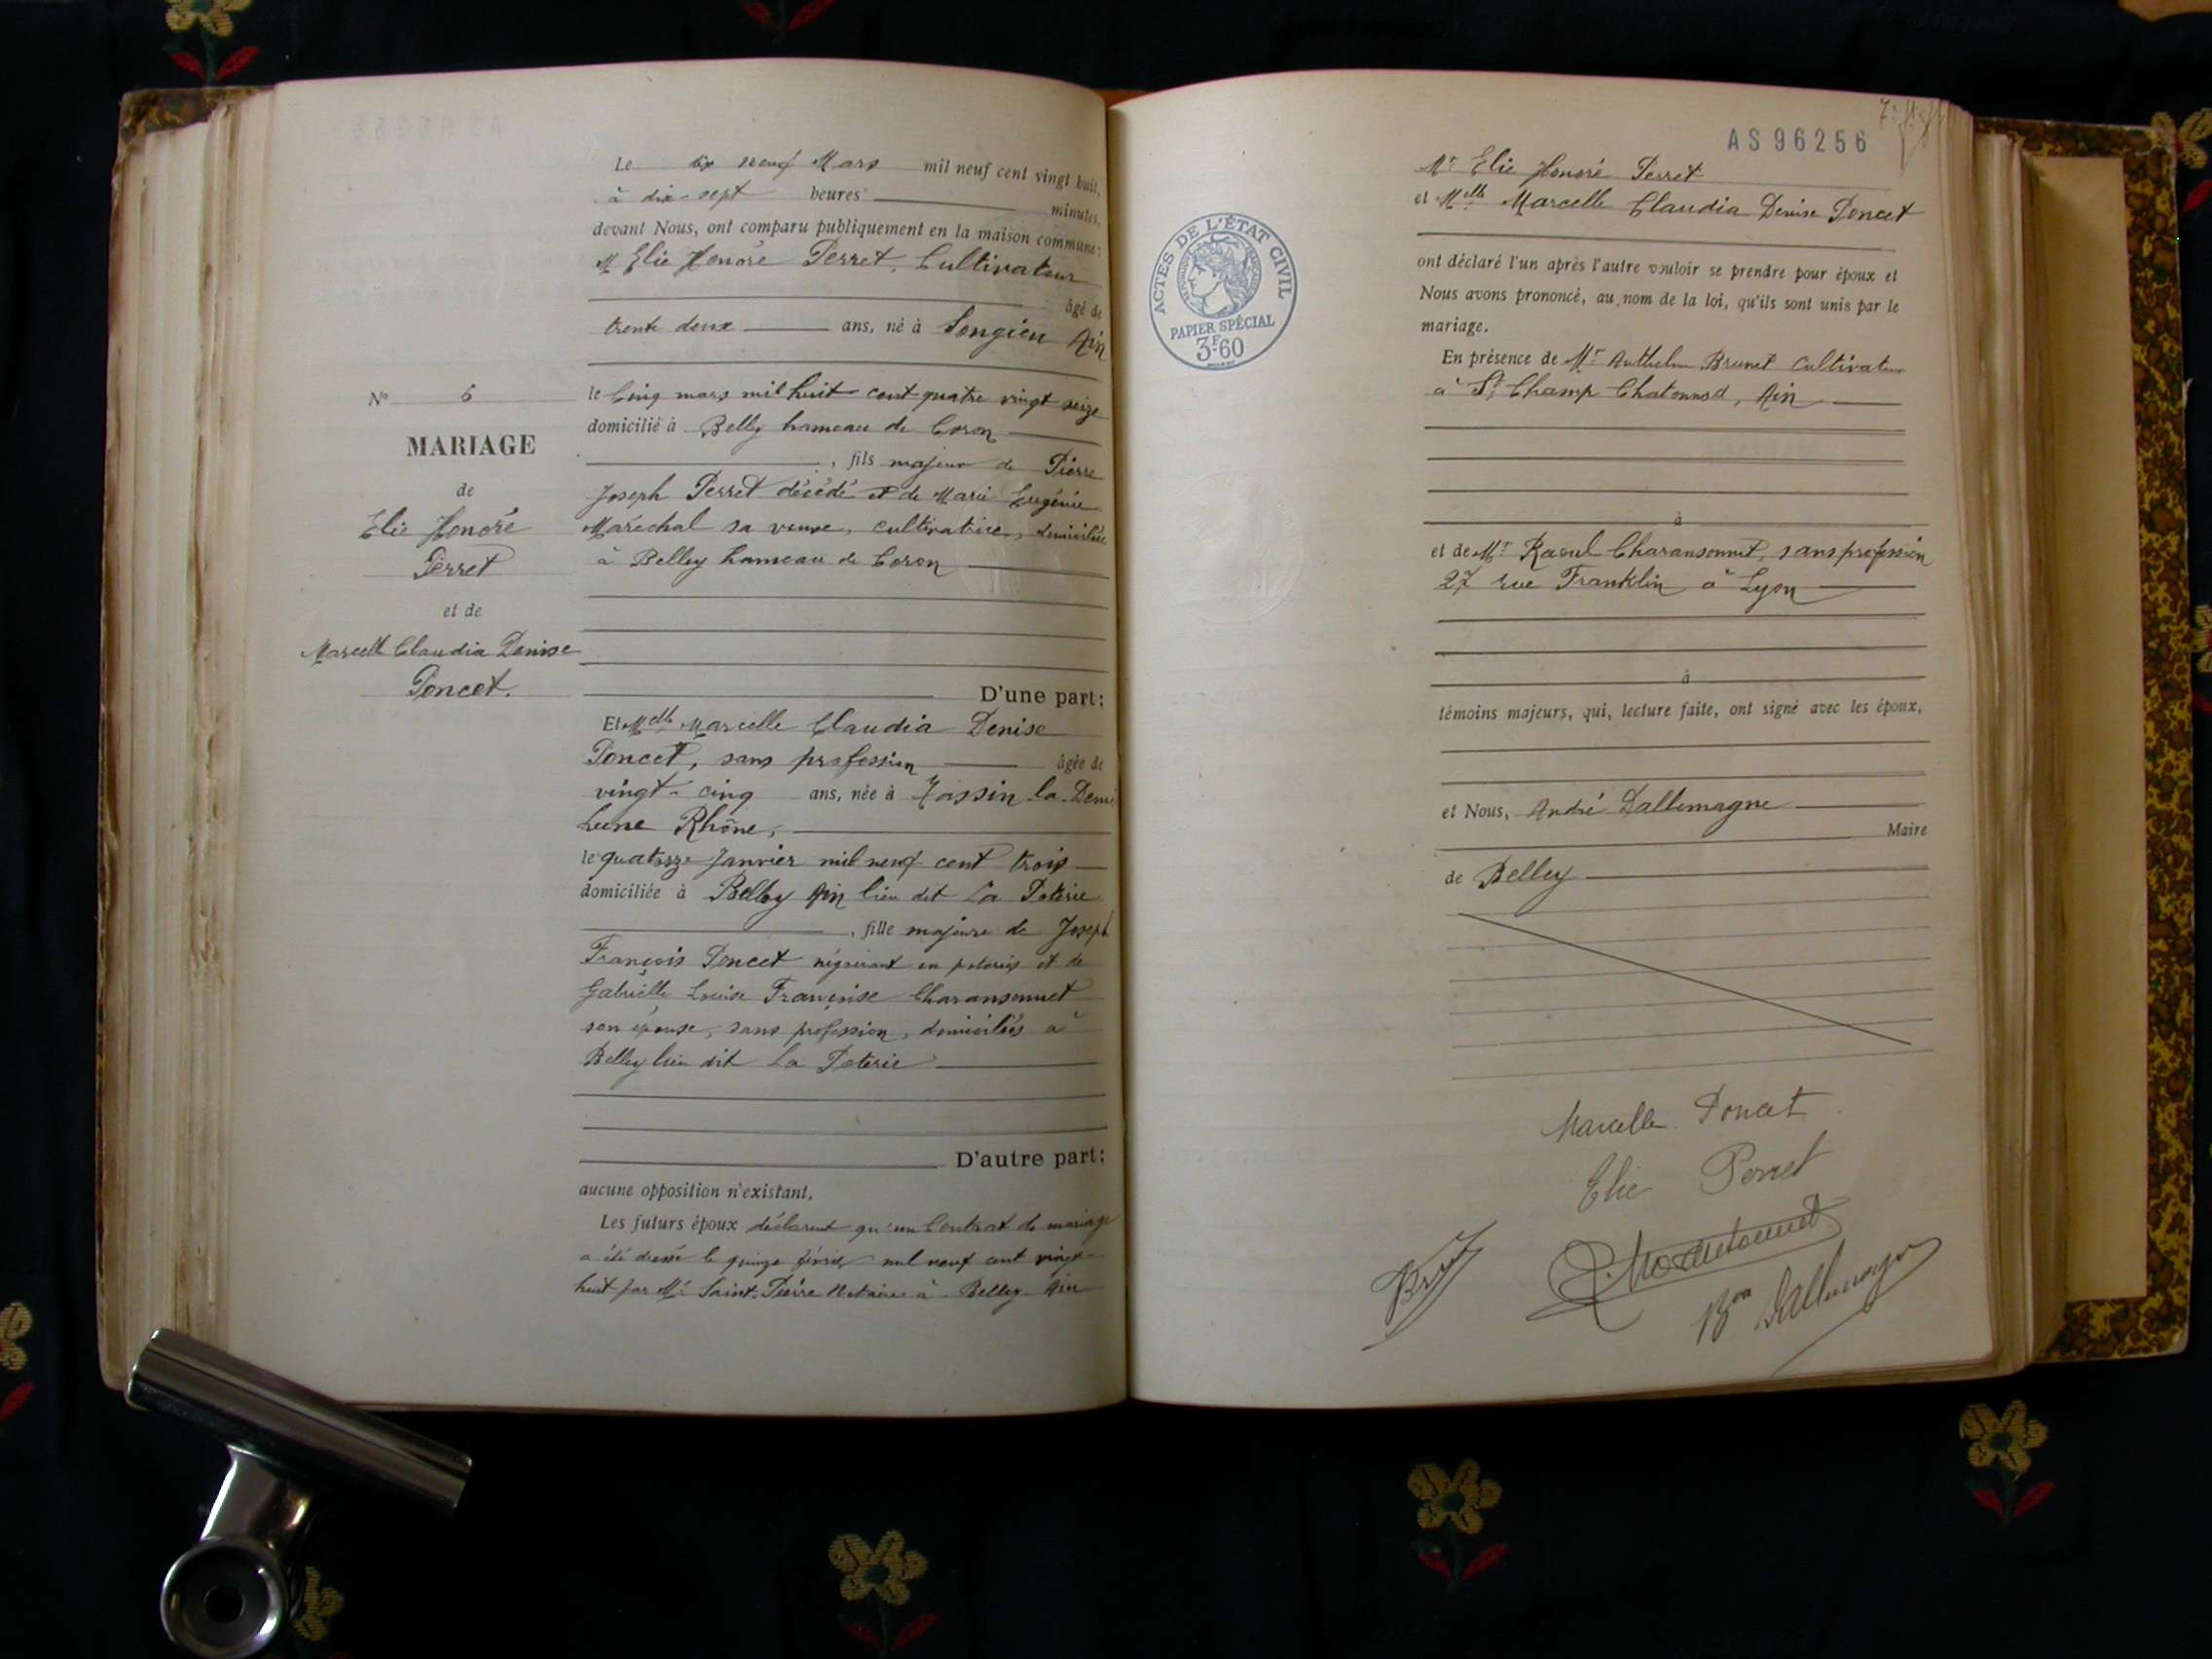 Le dix neuf Mars mil neuf cent vingt huit,
à dix-sept heures minutes,
devant Nous, ont comparu publiquement en la maison commune:
M Elie Honoré Perret, Cultivateur
âgé de
trente deux ans, né à Songieu Ain
le Cinq mars mil huit cent quatre vingt seize
domicilié à Belley hameau de Coron
, fils majeur de Pierre
Joseph Perret décédé et de Marie Eugénie
Maréchal sa veuve, cultivatrice, domiciliée
à Belley hameau de Coron
D'une part;
Et Melle Marcelle Claudia Denise
Poncet, sans profession âgée de
vingt-cinq ans, née à Tassin la Demi
Lune Rhône,
le quatorze Janvier mil neuf cent trois
domiciliée à Belley Ain lieu dit La Poterie
, fille majeure de Joseph
François Poncet négociant en poteries et de
Gabrielle Louise Françoise Charansonnet
son épouse, sans profession, domiciliés à
Belley lieu dit La Poterie
D'autre part;
aucune opposition n'existant,
Les futurs époux déclarent qu'un Contrat de mariage
a été dressé le quinze février mil neuf cent vingt-
huit par Me Saint-Pierre Notaire à Belley Ain
No 6
MARIAGE
de
Elie Honoré
Perret
et de
Marcelle Claudia Denise
Poncet.
AS 96256
Mr Elie Honoré Perret
et Melle Marcelle Claudia Denise Poncet
ont déclaré l'un après l'autre vouloir se prendre pour époux et
Nous avons prononcé, au nom de la loi, qu'ils sont unis par le
mariage.
En présence de Mr Anthelme Brunet Cultivateur
à St Champ Chatonnod, Ain
à
et de Mr Raoul Charansonnet, sans profession
27 rue Franklin à Lyon
à
témoins majeurs, qui, lecture faite, ont signé avec les époux,
et Nous, André Dallemagne
Maire
de Belley
ACTES DE L'ÉTAT CIVIL
PAPIER SPÉCIAL
3F.60
Marcelle Poncet
Elie Perret
Bon Dallemagne